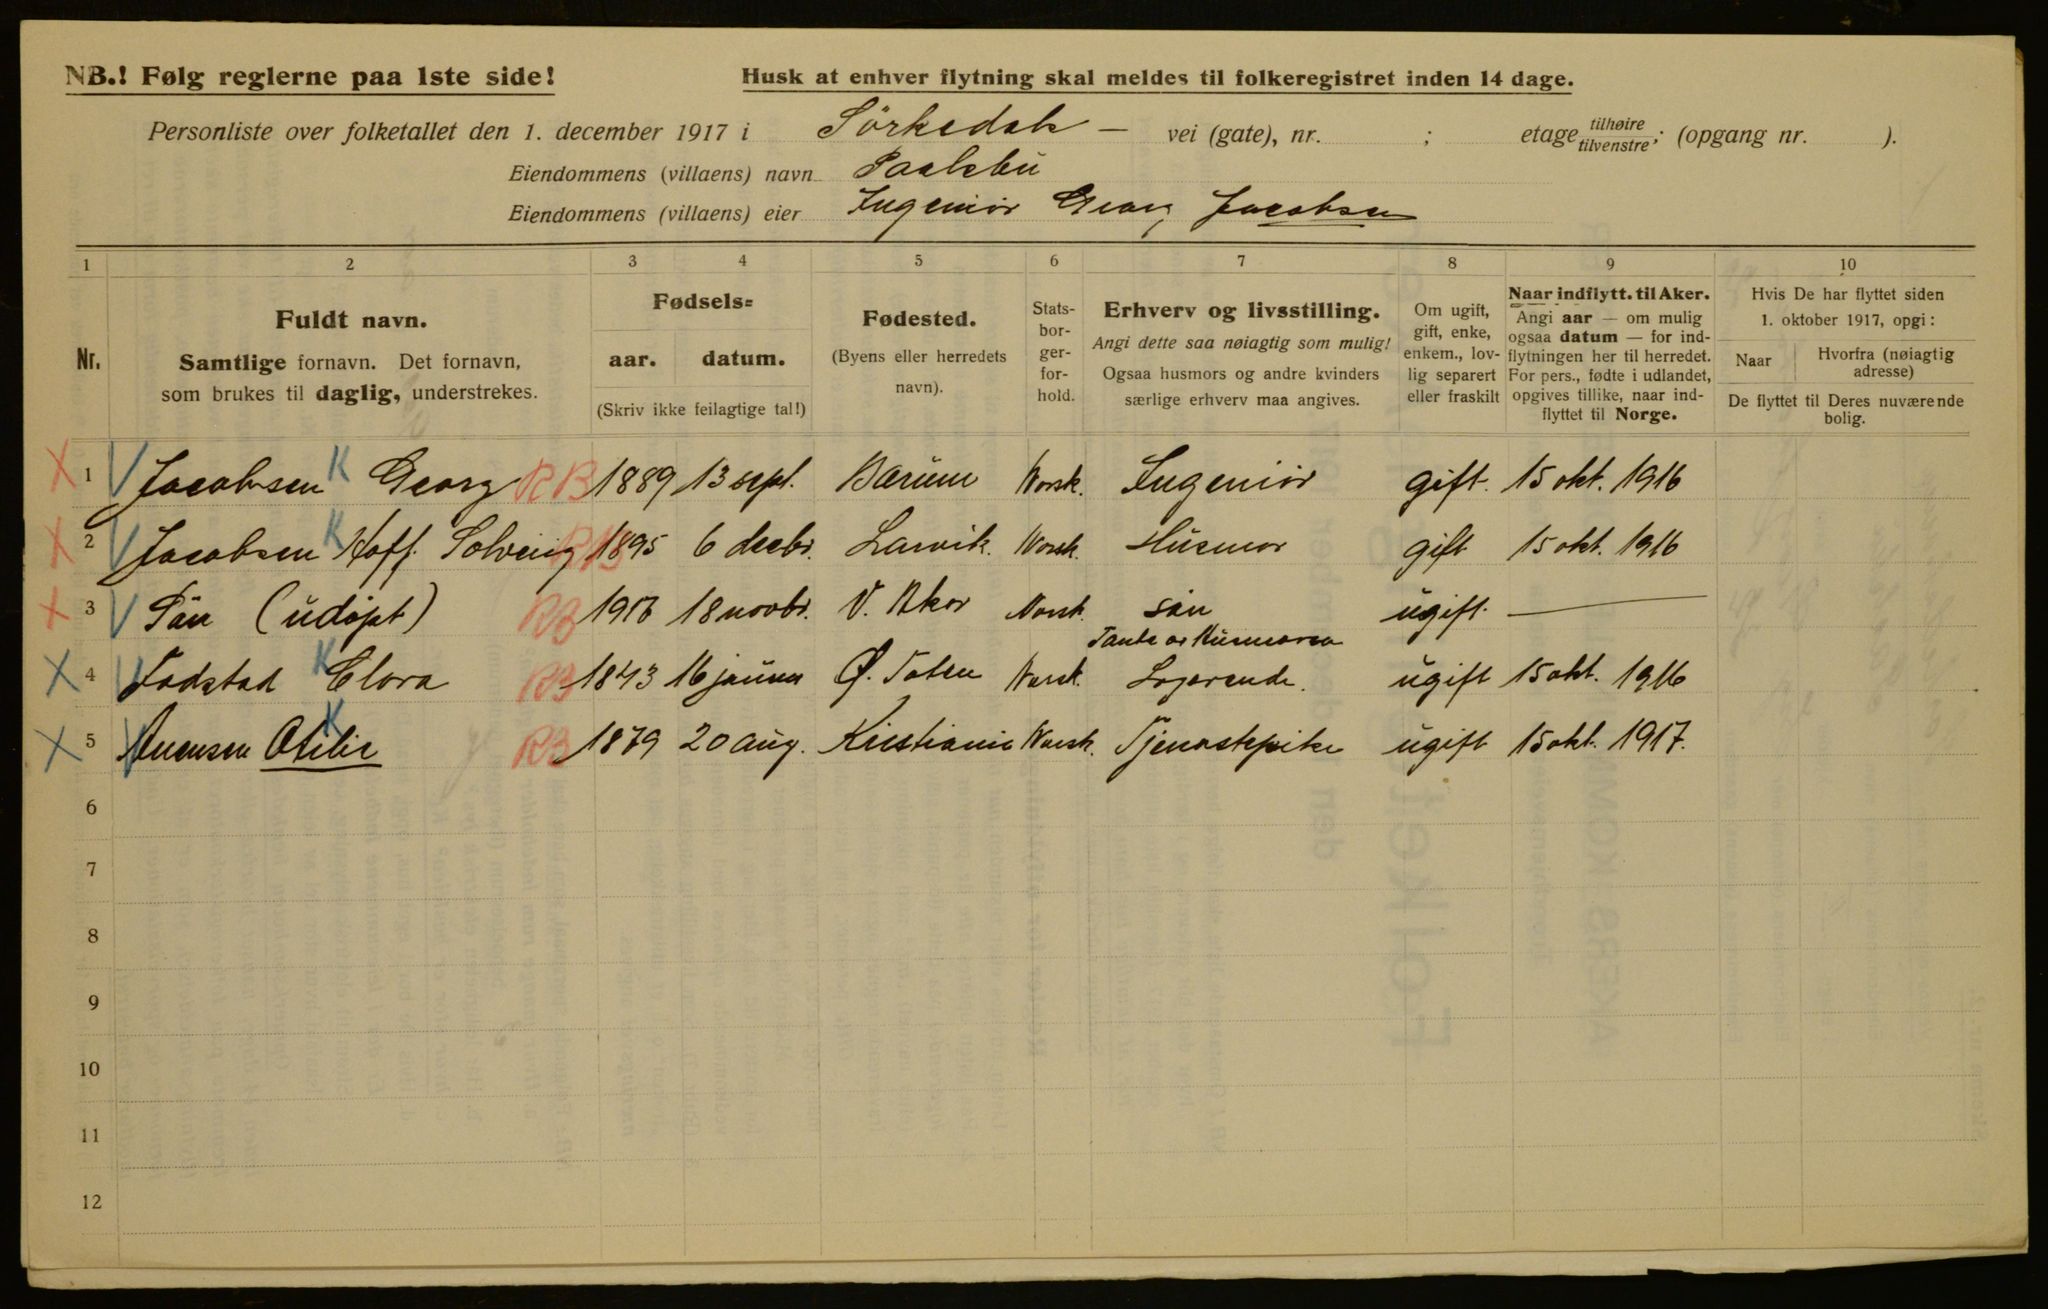 NB.! Følg reglerne paa 1ste side!
Husk at enhver flytning skal meldes til folkeregistret inden 14 dage.
Personliste over folketallet den 1. december 1917 i Sörkedals — vei (gate), nr. ; etage tilhøire tilvenstre; (opgang nr. ).
Eiendommens (villaens) navn Paalsbu
Eiendommens (villaens) eier Ingeniör Georg Jacobsen
1 2 3 4 5 6 7 8 9 10
Nr.
Fuldt navn.
Samtlige fornavn. Det fornavn,
som brukes til daglig, understrekes.
Fødsels=
aar. datum.
(Skriv ikke feilagtige tal!)
Fødested.
(Byens eller herredets
navn).
Stats-
bor-
ger-
for-
hold.
Erhverv og livsstilling.
Angi dette saa nøiagtig som mulig!
Ogsaa husmors og andre kvinders
særlige erhverv maa angives.
Om ugift,
gift, enke,
enkem., lov-
lig separert
eller fraskilt
Naar indflytt. til Aker.
Angi aar — om mulig
ogsaa datum — for ind-
flytningen her til herredet.
For pers., fødte i udlandet,
opgives tillike, naar ind-
flyttet til Norge.
Hvis De har flyttet siden
1. oktober 1917, opgi:
Naar
Hvorfra (nøiagtig
adresse)
De flyttet til Deres nuværende
bolig.
X 1 V Jacobsen K Georg RB 1889 13 sept. Bærum Norsk. Ingeniör gift. 15 okt. 1916
X 2 V Jacobsen K Hoff. Solveig RB 1895 6 decbr. Larvik. Norsk. Husmor gift 15 okt. 1916
X 3 V Sön (udöpt) RB 1917 18 novbr. V. Aker Norsk. sön ugift. —
Tante av Husmoren
X 4 V Fodstad K Clara RB 1843 16 januar Ø. Toten Norsk. Logerende. ugift 15 okt. 1916
X 5 V K Otilie RB 1879 20 aug. Kristiania Norsk. Tjenestepike ugift 15 okt. 1917.
6
7
8
9
10
11
12